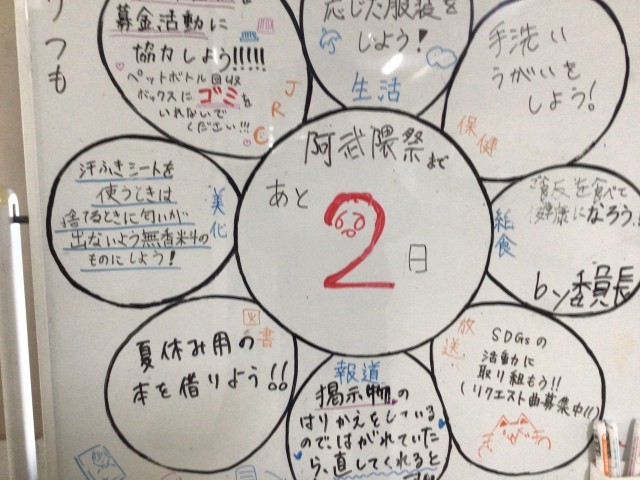 いつも
募金活動に
協力しよう!!!!!
ペットボトル回収
ボックスにゴミを
いれないで
ください!!!
JRC
応じた服装を
しよう!
生活
手洗い
うがいを
しよう!
保健
汗ふきシートを
使うときは
捨てるときに匂いが
出ないよう無香料の
ものにしよう!
美化
阿武隈祭まで
あと
2
日
を食べて
健康になろう!
by委員長
給食
図書
夏休み用の
本を借りよう!!
報道
掲示物の
はりかえをしている
ので、はがれていた
ら、直してくれると
放送
SDGsの
活動に
取り組もう!!
(リクエスト曲募集中!!)